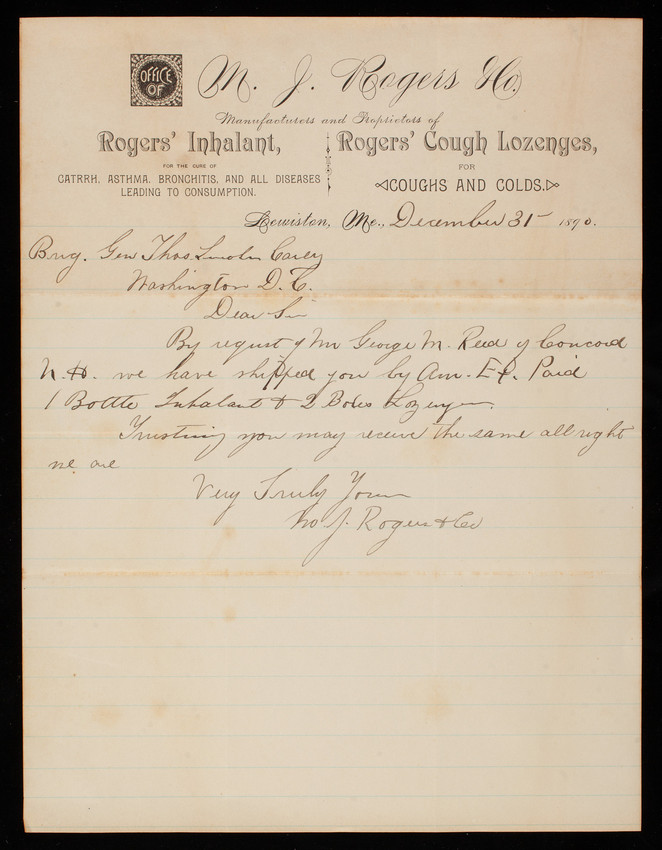 OFFICE
OF
M. J. Rogers & Co.
Manufacturers and Proprietors of
Rogers' Inhalant,
FOR THE CURE OF
CATRRH, ASTHMA, BRONCHITIS, AND ALL DISEASES
LEADING TO CONSUMPTION.
Rogers' Cough Lozenges,
FOR
COUGHS AND COLDS.
Lewiston, Me., December 31 1890.
Brig. Gen Thos. Lincoln Casey
Washington D.C.
Dear Sir
By request of Mr George M. Reed of Concord
N.H. we have shipped you by Am. Ex. Paid
1 Bottle Inhalant & 2 Boxes Lozenges.
Trusting you may receive the same all right
we are
Very Truly Yours
M. J. Rogers & Co